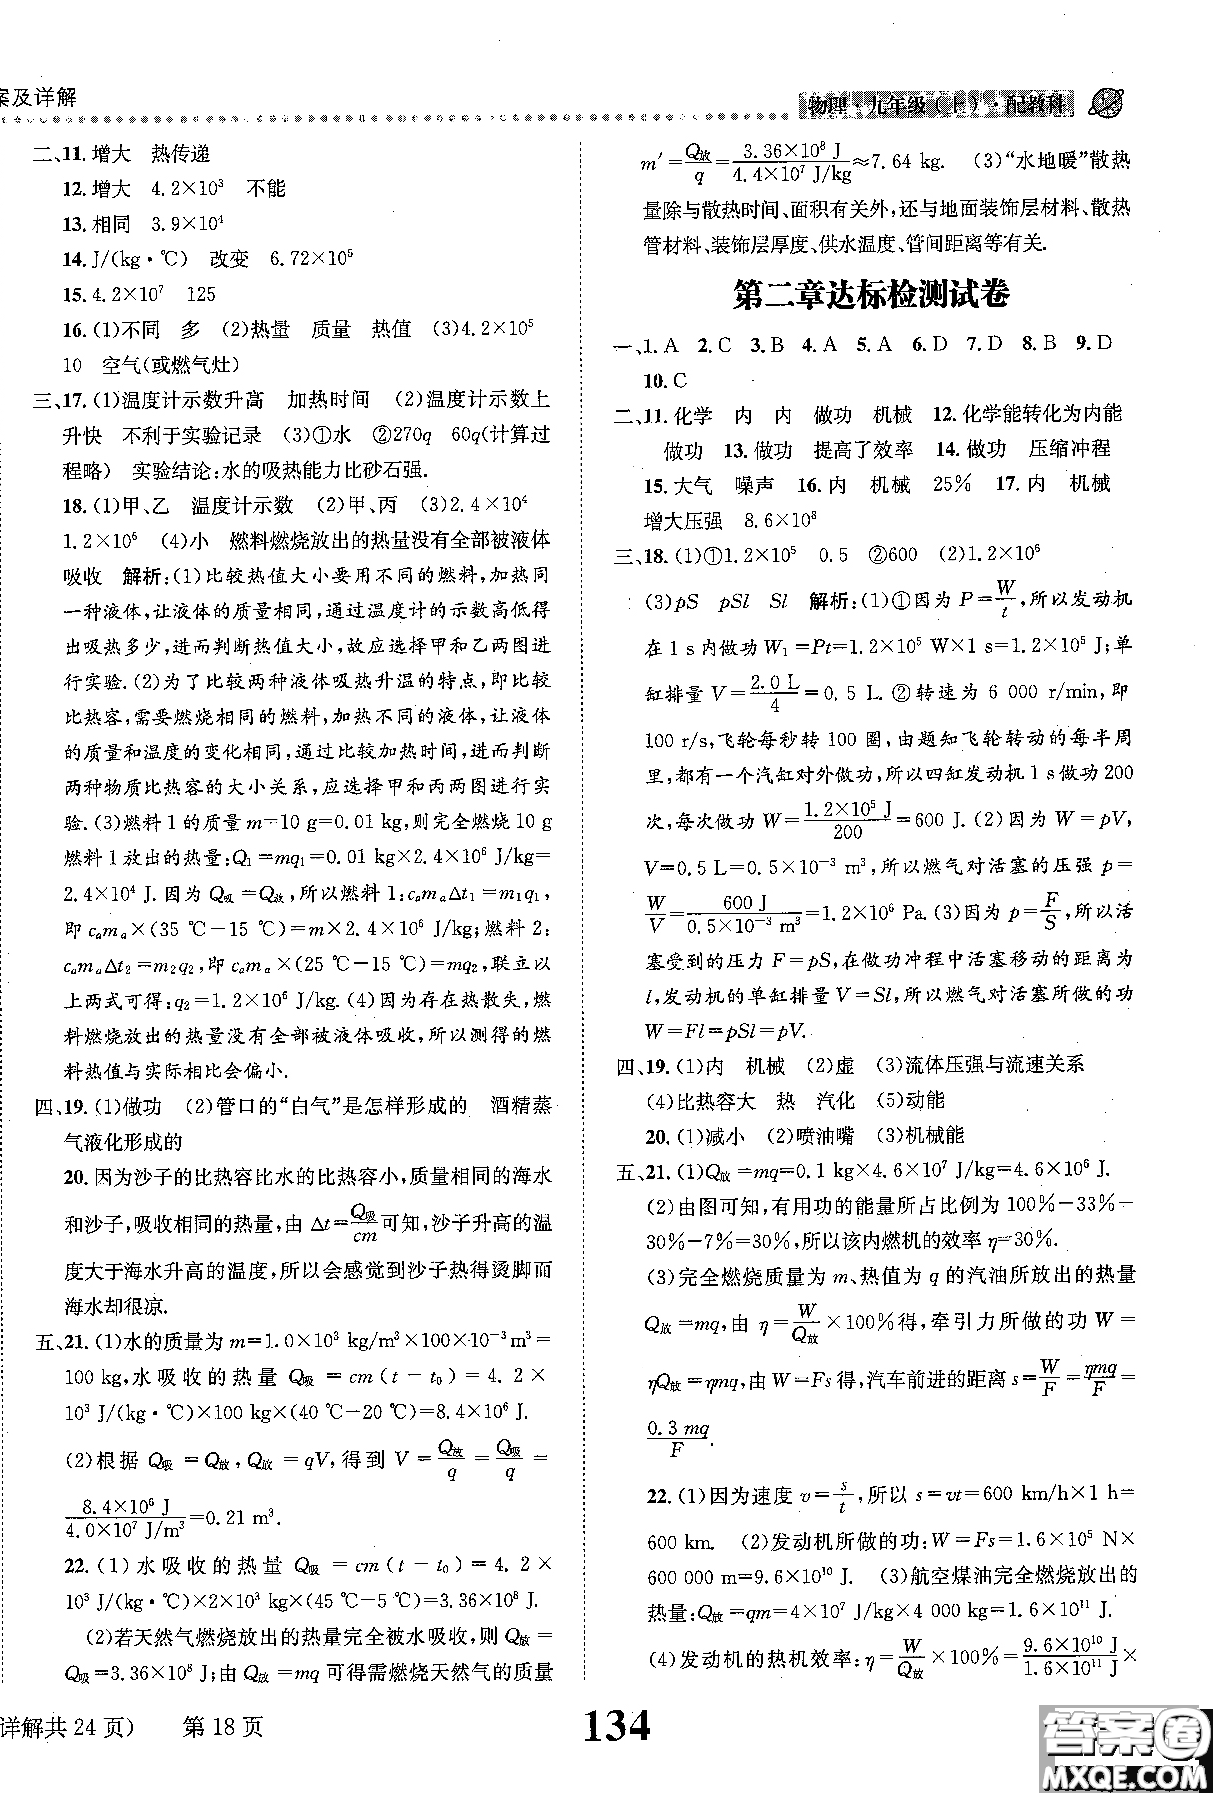 案及详解
物理·九年级(上)·配教科
二、11.增大 热传递
12.增大 4.2×10³ 不能
13.相同 3.9×10⁴
14.J/(kg·℃) 改变 6.72×10⁵
15.4.2×10⁷ 125
16.(1)不同 多 (2)热量 质量 热值 (3)4.2×10⁵
10 空气(或燃气灶)
三、17.(1)温度计示数升高 加热时间 (2)温度计示数上
升快 不利于实验记录 (3)①水 ②270q 60q(计算过
程略) 实验结论:水的吸热能力比砂石强.
18.(1)甲、乙 温度计示数 (2)甲、丙 (3)2.4×10⁴
1.2×10⁶ (4)小 燃料燃烧放出的热量没有全部被液体
吸收 解析:(1)比较热值大小要用不同的燃料,加热同
一种液体,让液体的质量相同,通过温度计的示数高低得
出吸热多少,进而判断热值大小,故应选择甲和乙两图进
行实验.(2)为了比较两种液体吸热升温的特点,即比较
比热容,需要燃烧相同的燃料,加热不同的液体,让液体
的质量和温度的变化相同,通过比较加热时间,进而判断
两种物质比热容的大小关系,应选择甲和丙两图进行实
验.(3)燃料1的质量m=10 g=0.01 kg,则完全燃烧10 g
燃料1放出的热量:Q₁=mq₁=0.01 kg×2.4×10⁶ J/kg=
2.4×10⁴ J.因为Q吸=Q放,所以燃料1:cₐmₐΔt₁=m₁q₁,
即cₐmₐ×(35 ℃-15 ℃)=m×2.4×10⁶ J/kg;燃料2:
cₐmₐΔt₂=m₂q₂,即cₐmₐ×(25 ℃-15 ℃)=mq₂,联立以
上两式可得:q₂=1.2×10⁶ J/kg.(4)因为存在热散失,燃
料燃烧放出的热量没有全部被液体吸收,所以测得的燃
料热值与实际相比会偏小.
四、19.(1)做功 (2)管口的“白气”是怎样形成的 酒精蒸
气液化形成的
20.因为沙子的比热容比水的比热容小,质量相同的海水
和沙子,吸收相同的热量,由Δt=Q吸/cm可知,沙子升高的温
度大于海水升高的温度,所以会感觉到沙子热得烫脚而
海水却很凉.
五、21.(1)水的质量为m=1.0×10³ kg/m³×100×10⁻³m³=
100 kg,水吸收的热量Q吸=cm(t-t₀)=4.2×
10³ J/(kg·℃)×100 kg×(40 ℃-20 ℃)=8.4×10⁶ J.
(2)根据Q吸=Q放,Q放=qV,得到V=Q放/q=Q吸/q=
8.4×10⁶ J/4.0×10⁷ J/m³=0.21 m³.
22.(1)水吸收的热量Q吸=cm(t-t₀)=4.2×
10³ J/(kg·℃)×2×10³ kg×(45 ℃-5 ℃)=3.36×10⁸ J.
(2)若天然气燃烧放出的热量完全被水吸收,则Q放=
Q吸=3.36×10⁸ J;由Q放=mq可得需燃烧天然气的质量
m′=Q放/q=3.36×10⁸ J/4.4×10⁷ J/kg≈7.64 kg. (3)“水地暖”散热
量除与散热时间、面积有关外,还与地面装饰层材料、散热
管材料、装饰层厚度、供水温度、管间距离等有关.
第二章达标检测试卷
一、1.A 2.C 3.B 4.A 5.A 6.D 7.D 8.B 9.D
10.C
二、11.化学 内 内 做功 机械 12.化学能转化为内能
做功 13.做功 提高了效率 14.做功 压缩冲程
15.大气 噪声 16.内 机械 25% 17.内 机械
增大压强 8.6×10⁸
三、18.(1)①1.2×10⁵ 0.5 ②600 (2)1.2×10⁶
(3)pS pSl Sl 解析:(1)①因为P=W/t,所以发动机
在1 s内做功W₁=Pt=1.2×10⁵ W×1 s=1.2×10⁵ J;单
缸排量V=2.0 L/4=0.5 L.②转速为6 000 r/min,即
100 r/s,飞轮每秒转100圈,由题知飞轮转动的每半周
里,都有一个汽缸对外做功,所以四缸发动机1 s做功200
次,每次做功W=1.2×10⁵ J/200=600 J.(2)因为W=pV,
V=0.5 L=0.5×10⁻³ m³,所以燃气对活塞的压强p=
W/V=600 J/0.5×10⁻³ m³=1.2×10⁶ Pa.(3)因为p=F/S,所以活
塞受到的压力F=pS,在做功冲程中活塞移动的距离为
l,发动机的单缸排量V=Sl,所以燃气对活塞所做的功
W=Fl=pSl=pV.
四、19.(1)内 机械 (2)虚 (3)流体压强与流速关系
(4)比热容大 热 汽化 (5)动能
20.(1)减小 (2)喷油嘴 (3)机械能
五、21.(1)Q放=mq=0.1 kg×4.6×10⁷ J/kg=4.6×10⁶ J.
(2)由图可知,有用功的能量所占比例为100%-33%-
30%-7%=30%,所以该内燃机的效率η=30%.
(3)完全燃烧质量为m、热值为q的汽油所放出的热量
Q放=mq,由η=W/Q放×100%得,牵引力所做的功W=
ηQ放=ηmq,由W=Fs得,汽车前进的距离s=W/F=ηmq/F=
0.3mq/F.
22.(1)因为速度v=s/t,所以s=vt=600 km/h×1 h=
600 km. (2)发动机所做的功:W=Fs=1.6×10⁵ N×
600 000 m=9.6×10¹⁰ J. (3)航空煤油完全燃烧放出的
热量:Q放=qm=4×10⁷ J/kg×4 000 kg=1.6×10¹¹ J.
(4)发动机的热机效率:η=W/Q放×100%=9.6×10¹⁰ J/1.6×10¹¹ J×
详解共24页) 第18页
134
答案圈
MXQE.COM